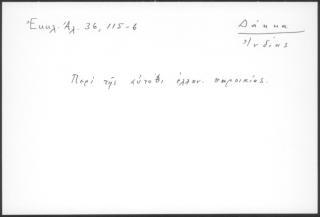 Ἐκκλ. Ἀλ. 36, 115-6
Δάκκα
Ἰνδίας
Περὶ τῆς αὐτόθι ἑλλην. παροικίας.